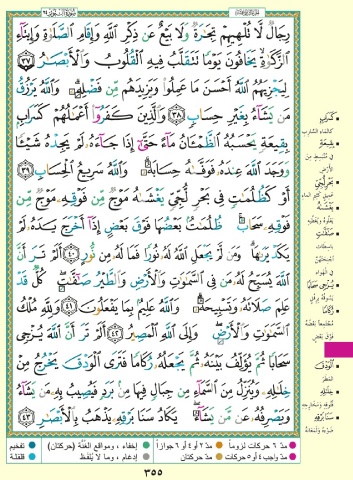 سُورَةُ النُّورِ ٢٤
رِجَالٌ لَّا تُلْهِيهِمْ تِجَٰرَةٌ وَلَا بَيْعٌ عَن ذِكْرِ ٱللَّهِ وَإِقَامِ ٱلصَّلَوٰةِ وَإِيتَآءِ
ٱلزَّكَوٰةِ يَخَافُونَ يَوْمًا تَتَقَلَّبُ فِيهِ ٱلْقُلُوبُ وَٱلْأَبْصَٰرُ ٣٧
لِيَجْزِيَهُمُ ٱللَّهُ أَحْسَنَ مَا عَمِلُوا۟ وَيَزِيدَهُم مِّن فَضْلِهِۦ وَٱللَّهُ يَرْزُقُ
مَن يَشَآءُ بِغَيْرِ حِسَابٍ ٣٨ وَٱلَّذِينَ كَفَرُوٓا۟ أَعْمَٰلُهُمْ كَسَرَابٍۭ
بِقِيعَةٍ يَحْسَبُهُ ٱلظَّمْـَٔانُ مَآءً حَتَّىٰٓ إِذَا جَآءَهُۥ لَمْ يَجِدْهُ شَيْـًٔا
وَوَجَدَ ٱللَّهَ عِندَهُۥ فَوَفَّىٰهُ حِسَابَهُۥ وَٱللَّهُ سَرِيعُ ٱلْحِسَابِ ٣٩
أَوْ كَظُلُمَٰتٍ فِى بَحْرٍ لُّجِّىٍّ يَغْشَىٰهُ مَوْجٌ مِّن فَوْقِهِۦ مَوْجٌ مِّن
فَوْقِهِۦ سَحَابٌ ظُلُمَٰتٌۢ بَعْضُهَا فَوْقَ بَعْضٍ إِذَآ أَخْرَجَ يَدَهُۥ لَمْ
يَكَدْ يَرَىٰهَا وَمَن لَّمْ يَجْعَلِ ٱللَّهُ لَهُۥ نُورًا فَمَا لَهُۥ مِن نُّورٍ ٤٠ أَلَمْ تَرَ أَنَّ
ٱللَّهَ يُسَبِّحُ لَهُۥ مَن فِى ٱلسَّمَٰوَٰتِ وَٱلْأَرْضِ وَٱلطَّيْرُ صَٰٓفَّٰتٍ كُلٌّ قَدْ
عَلِمَ صَلَاتَهُۥ وَتَسْبِيحَهُۥ وَٱللَّهُ عَلِيمٌۢ بِمَا يَفْعَلُونَ ٤١ وَلِلَّهِ مُلْكُ
ٱلسَّمَٰوَٰتِ وَٱلْأَرْضِ وَإِلَى ٱللَّهِ ٱلْمَصِيرُ ٤٢ أَلَمْ تَرَ أَنَّ ٱللَّهَ يُزْجِى
سَحَابًا ثُمَّ يُؤَلِّفُ بَيْنَهُۥ ثُمَّ يَجْعَلُهُۥ رُكَامًا فَتَرَى ٱلْوَدْقَ يَخْرُجُ مِنْ
خِلَٰلِهِۦ وَيُنَزِّلُ مِنَ ٱلسَّمَآءِ مِن جِبَالٍ فِيهَا مِنۢ بَرَدٍ فَيُصِيبُ بِهِۦ مَن يَشَآءُ
وَيَصْرِفُهُۥ عَن مَّن يَشَآءُ يَكَادُ سَنَا بَرْقِهِۦ يَذْهَبُ بِٱلْأَبْصَٰرِ ٤٣
كَسَرَابٍ
كالماء السارب
بِقِيعَةٍ
في منبسط من
الأرض
بَحْرٍ لُّجِّيٍّ
عميق كثير الماء
يَغْشَاهُ
يعلوه ويغطيه
صَافَّاتٍ
باسطات
أجنحتهن
في الهواء
يُزْجِي سَحَابًا
يسوقه برفق
رُكَامًا
مجتمعاً بعضه
فوق بعض
الْوَدْقَ
المطر
خِلَالِهِ
فتوقه ومخارجه
سَنَا بَرْقِهِ
ضوء برقه ولمعانه
مدّ ٦ حركات لزوماً
مدّ ٢ أو ٤ أو ٦ جوازاً
إخفاء، ومواقع الغنّة (حركتان)
تفخيم
مدّ واجب ٤ أو ٥ حركات
مدّ حركتان
إدغام ، وما لا يُلفظ
قلقلة
٣٥٥